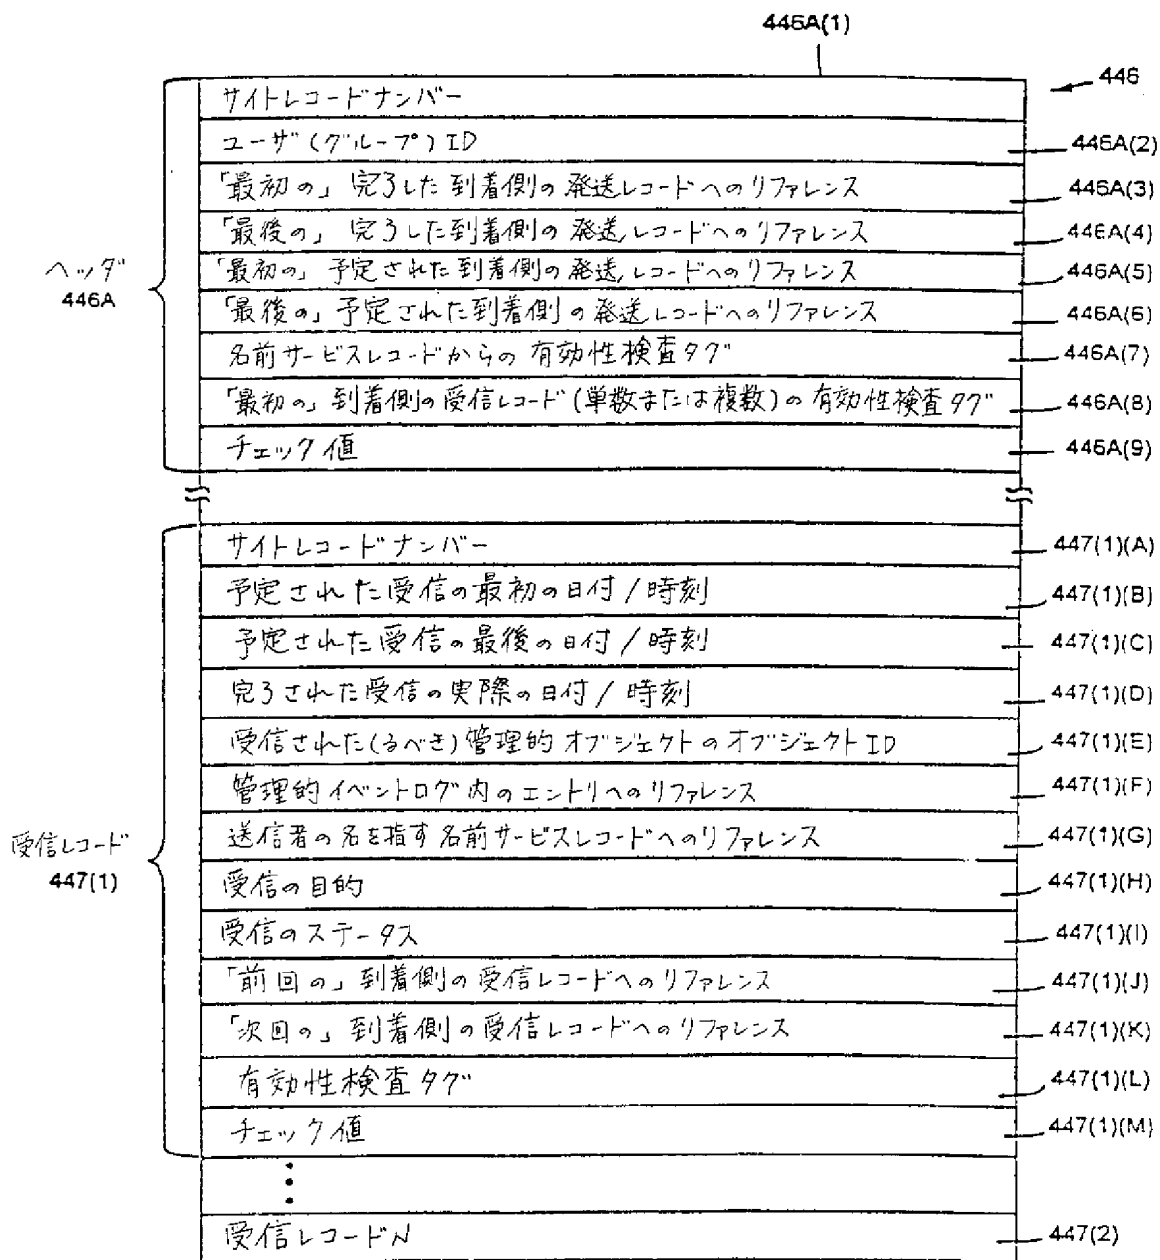 446A(1)
446
サイトレコードナンバー
ユーザ(グループ)ID
446A(2)
「最初の」完了した到着側の発送レコードへのリファレンス
446A(3)
「最後の」完了した到着側の発送レコードへのリファレンス
446A(4)
「最初の」予定された到着側の発送レコードへのリファレンス
446A(5)
ヘッダ
446A
「最後の」予定された到着側の発送レコードへのリファレンス
446A(6)
名前サービスレコードからの有効性検査タグ
446A(7)
「最初の」到着側の受信レコード(単数または複数)の有効性検査タグ
446A(8)
チェック値
446A(9)
サイトレコードナンバー
447(1)(A)
予定された受信の最初の日付/時刻
447(1)(B)
予定された受信の最後の日付/時刻
447(1)(C)
完了された受信の実際の日付/時刻
447(1)(D)
受信された(るべき)管理的オブジェクトのオブジェクトID
447(1)(E)
管理的イベントログ内のエントリへのリファレンス
447(1)(F)
送信者の名を指す名前サービスレコードへのリファレンス
447(1)(G)
受信レコード
447(1)
受信の目的
447(1)(H)
受信のステータス
447(1)(I)
「前回の」到着側の受信レコードへのリファレンス
447(1)(J)
「次回の」到着側の受信レコードへのリファレンス
447(1)(K)
有効性検査タグ
447(1)(L)
チェック値
447(1)(M)
受信レコードN
447(2)